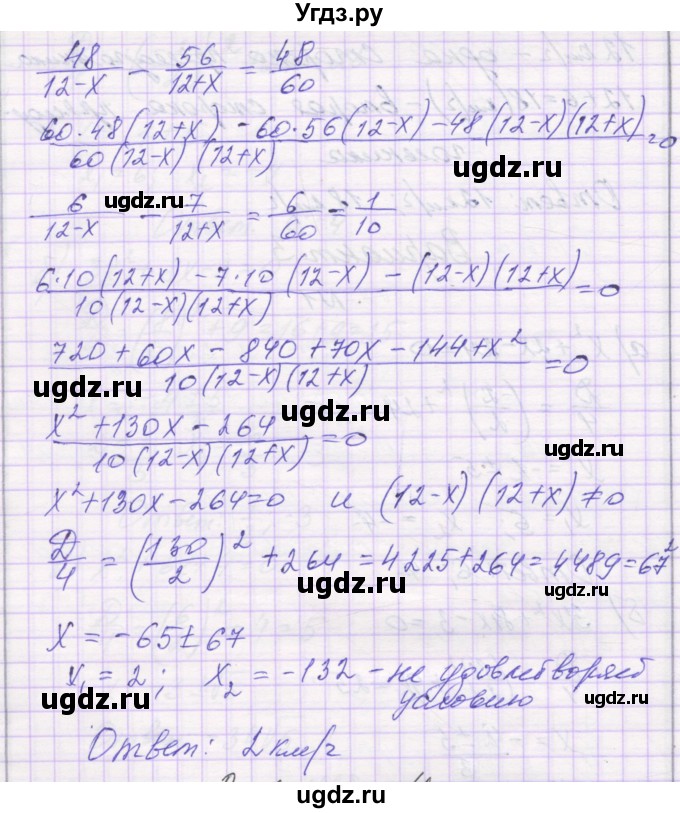 Угдз.ру
48/(12-x) - 56/(12+x) = 48/60
(60·48(12+x) - 60·56(12-x) - 48(12-x)(12+x))/(60(12-x)(12+x)) = 0
ugdz.ru
ugdz.ru
6/(12-x) - 7/(12+x) = 6/60 = 1/10
ugdz.ru
(6·10(12+x) - 7·10(12-x) - (12-x)(12+x))/(10(12-x)(12+x)) = 0
(720 + 60x - 840 + 70x - 144 + x²)/(10(12-x)(12+x)) = 0
ugdz.ru
ugdz.ru
(x² + 130x - 264)/(10(12-x)(12+x)) = 0
ugdz.ru
x² + 130x - 264 = 0 и (12-x)(12+x) ≠ 0
D/4 = (130/2)² + 264 = 4225 + 264 = 4489 = 67²
ugdz.ru
ugdz.ru
x = -65 ± 67
x₁ = 2; x₂ = -132 - не удовлетворяет
ugdz.ru
условию
Ответ: 2 км/ч
ugdz.ru
ugdz.ru
ugdz.ru